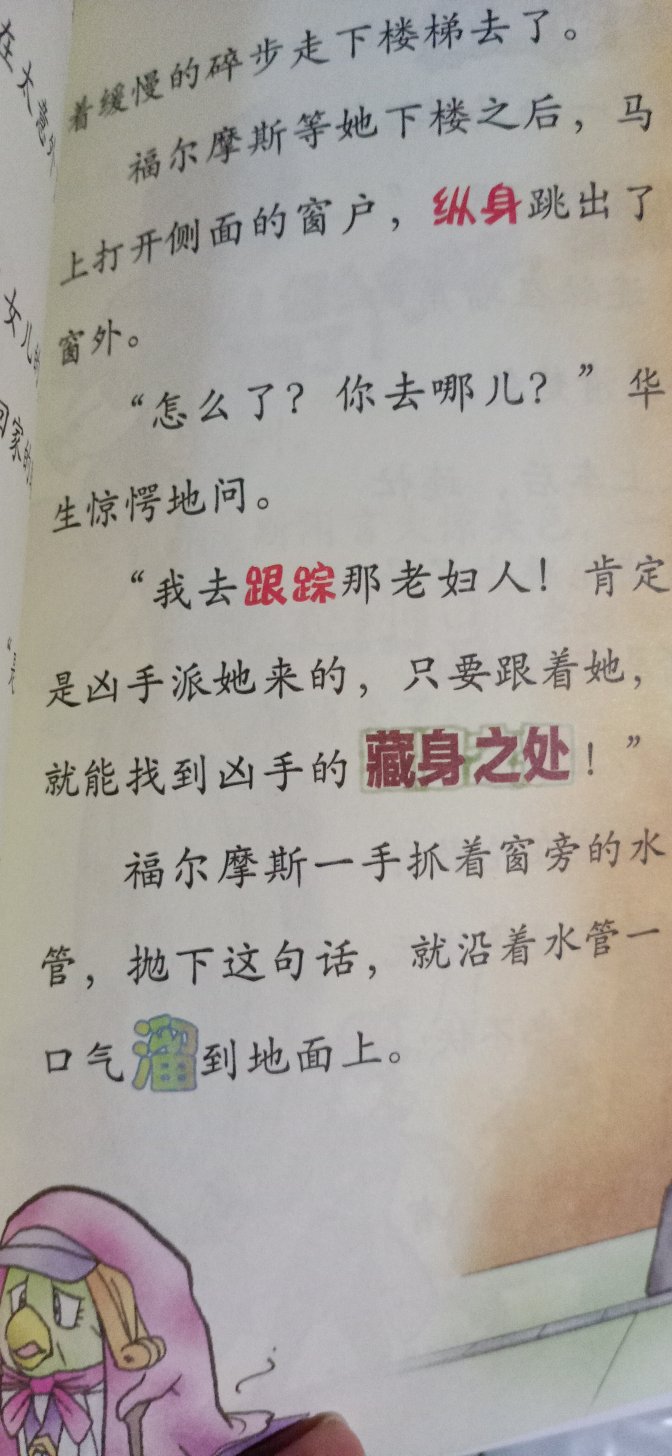 着缓慢的碎步走下楼梯去了。
福尔摩斯等她下楼之后，马
上打开侧面的窗户，纵身跳出了
窗外。
“怎么了？你去哪儿？”华
生惊愕地问。
“我去跟踪那老妇人！肯定
是凶手派她来的，只要跟着她，
就能找到凶手的藏身之处！”
福尔摩斯一手抓着窗旁的水
管，抛下这句话，就沿着水管一
口气溜到地面上。